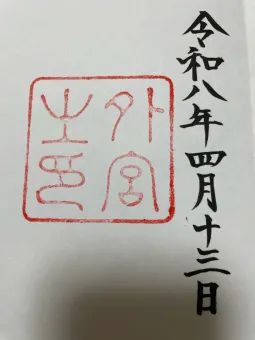 令和八年四月十三日
外宮之印